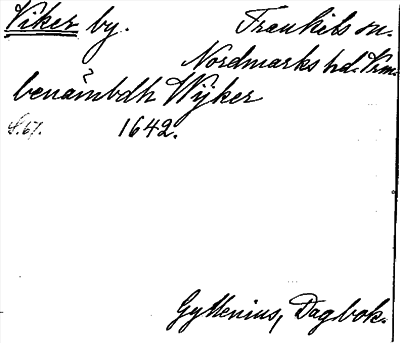 Viker by. Trankils sn.
Nordmarks hd. Vrm.
benämbdh Wijker
S. 67. 1642.
Gyllenius, Dagbok.